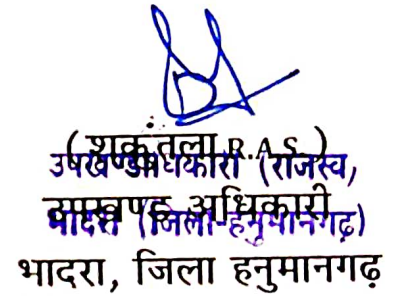 (शकुंतला R.A.S.)
उपखण्ड अधिकारी (राजस्व,
उपखण्ड अधिकारी
भादरा (जिला-हनुमानगढ़)
भादरा, जिला हनुमानगढ़